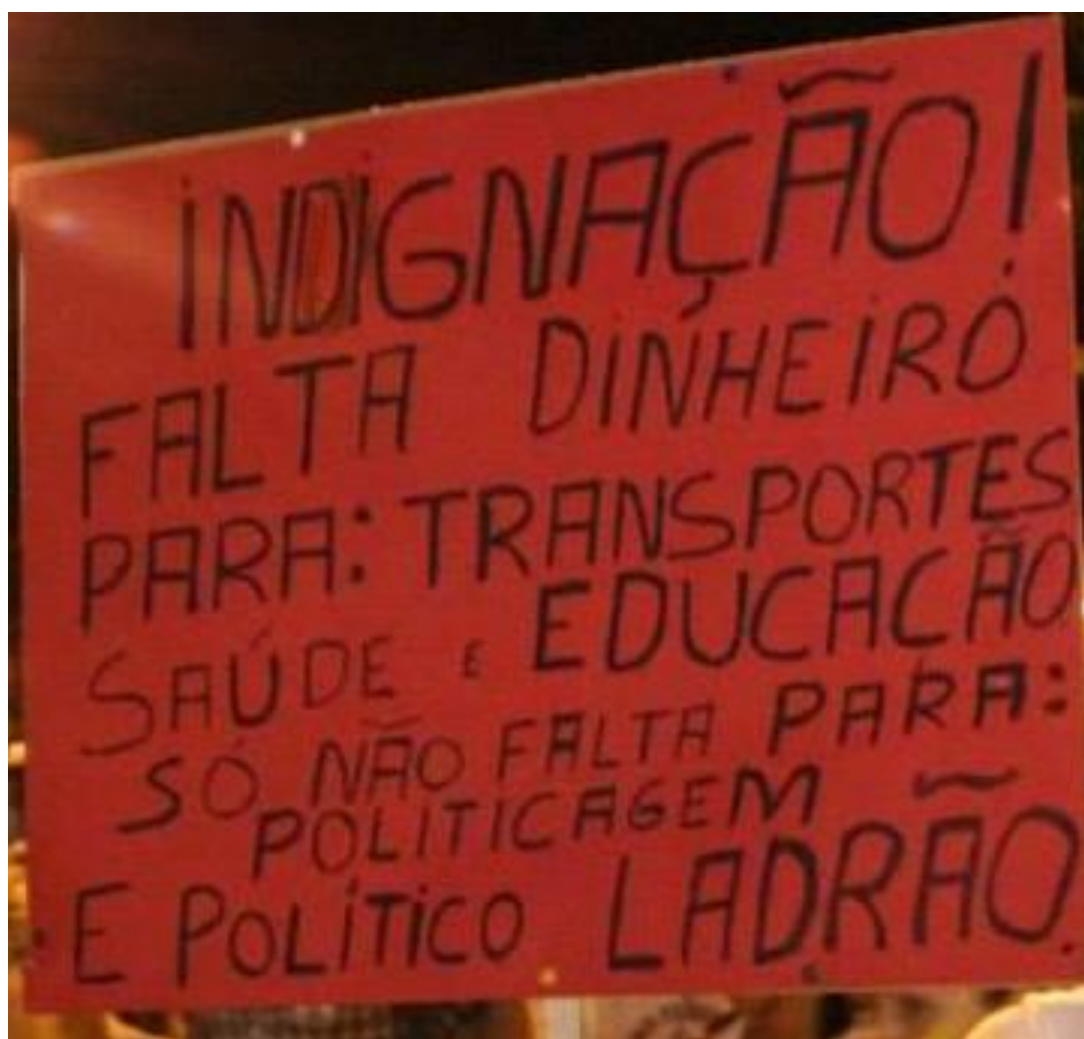 INDIGNAÇÃO!
FALTA DINHEIRO
PARA: TRANSPORTES
SAÚDE E EDUCACÃO
SÓ NÃO FALTA PARA:
POLITICAGEM
E POLÍTICO LADRÃO.